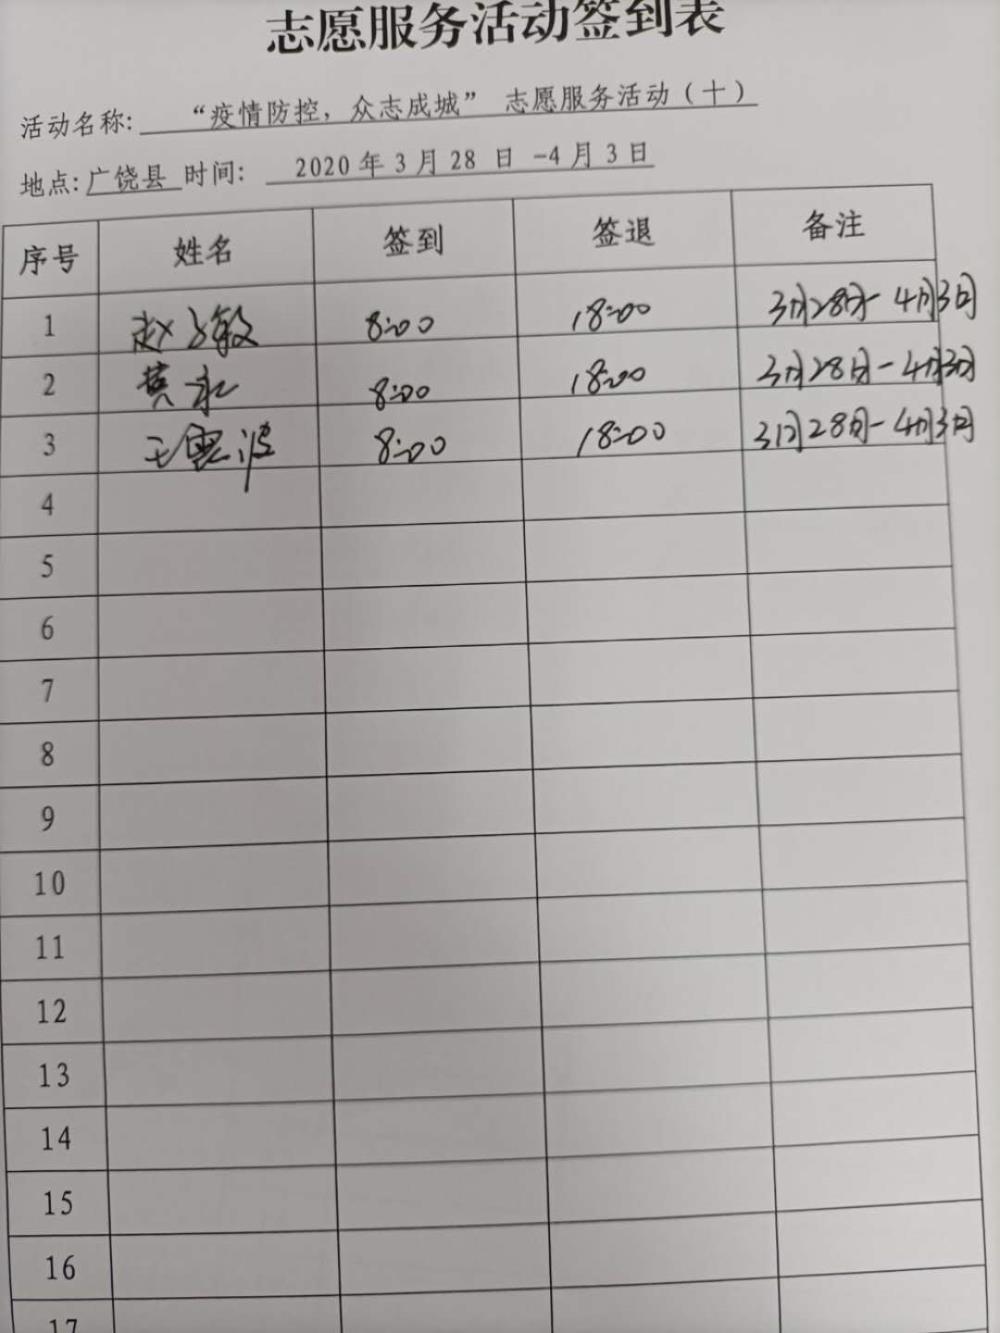 志愿服务活动签到表
活动名称: “疫情防控，众志成城” 志愿服务活动（十）
地点: 广饶县 时间: 2020 年 3 月 28 日 -4 月 3 日
序号 姓名 签到 签退 备注
1 赵 敏 8:00 18:00 3月28日- 4月3日
2 黄永 8:00 18:00 3月28日-4月3日
3 王 波 8:00 18:00 3月28日-4月3日
4
5
6
7
8
9
10
11
12
13
14
15
16
17